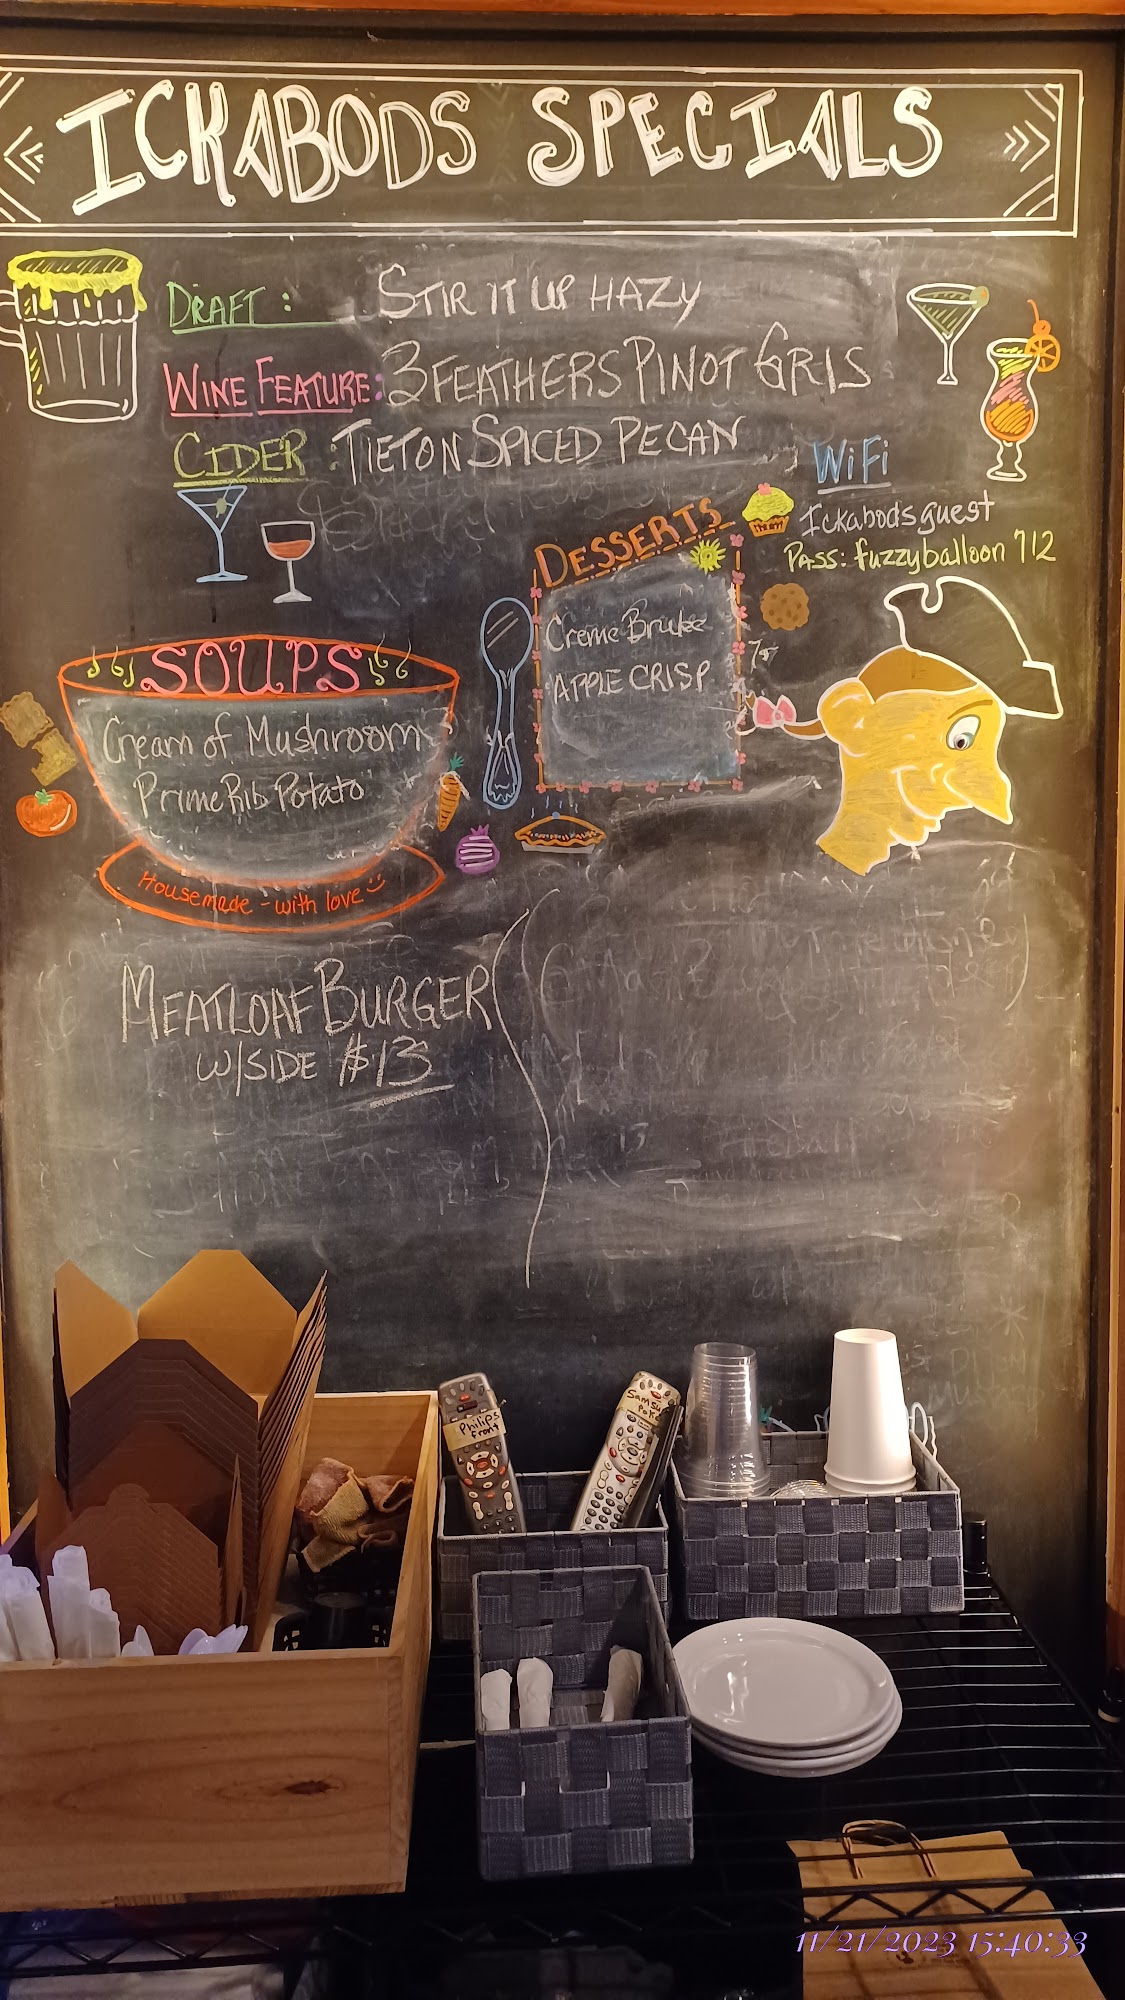 ICKABODS SPECIALS
DRAFT: STIR IT UP HAZY
WINE FEATURE: 3 FEATHERS PINOT GRIS
CIDER: TIETON SPICED PECAN
WiFi
Ickabodsguest
PASS: fuzzyballoon 712
DESSERTS
Creme Brulee
APPLE CRISP
SOUPS
Cream of Mushroom
Prime Rib Potato
Housemade - with love
MEATLOAF BURGER
W/SIDE $13
Philips
front
11/21/2023 15:40:33